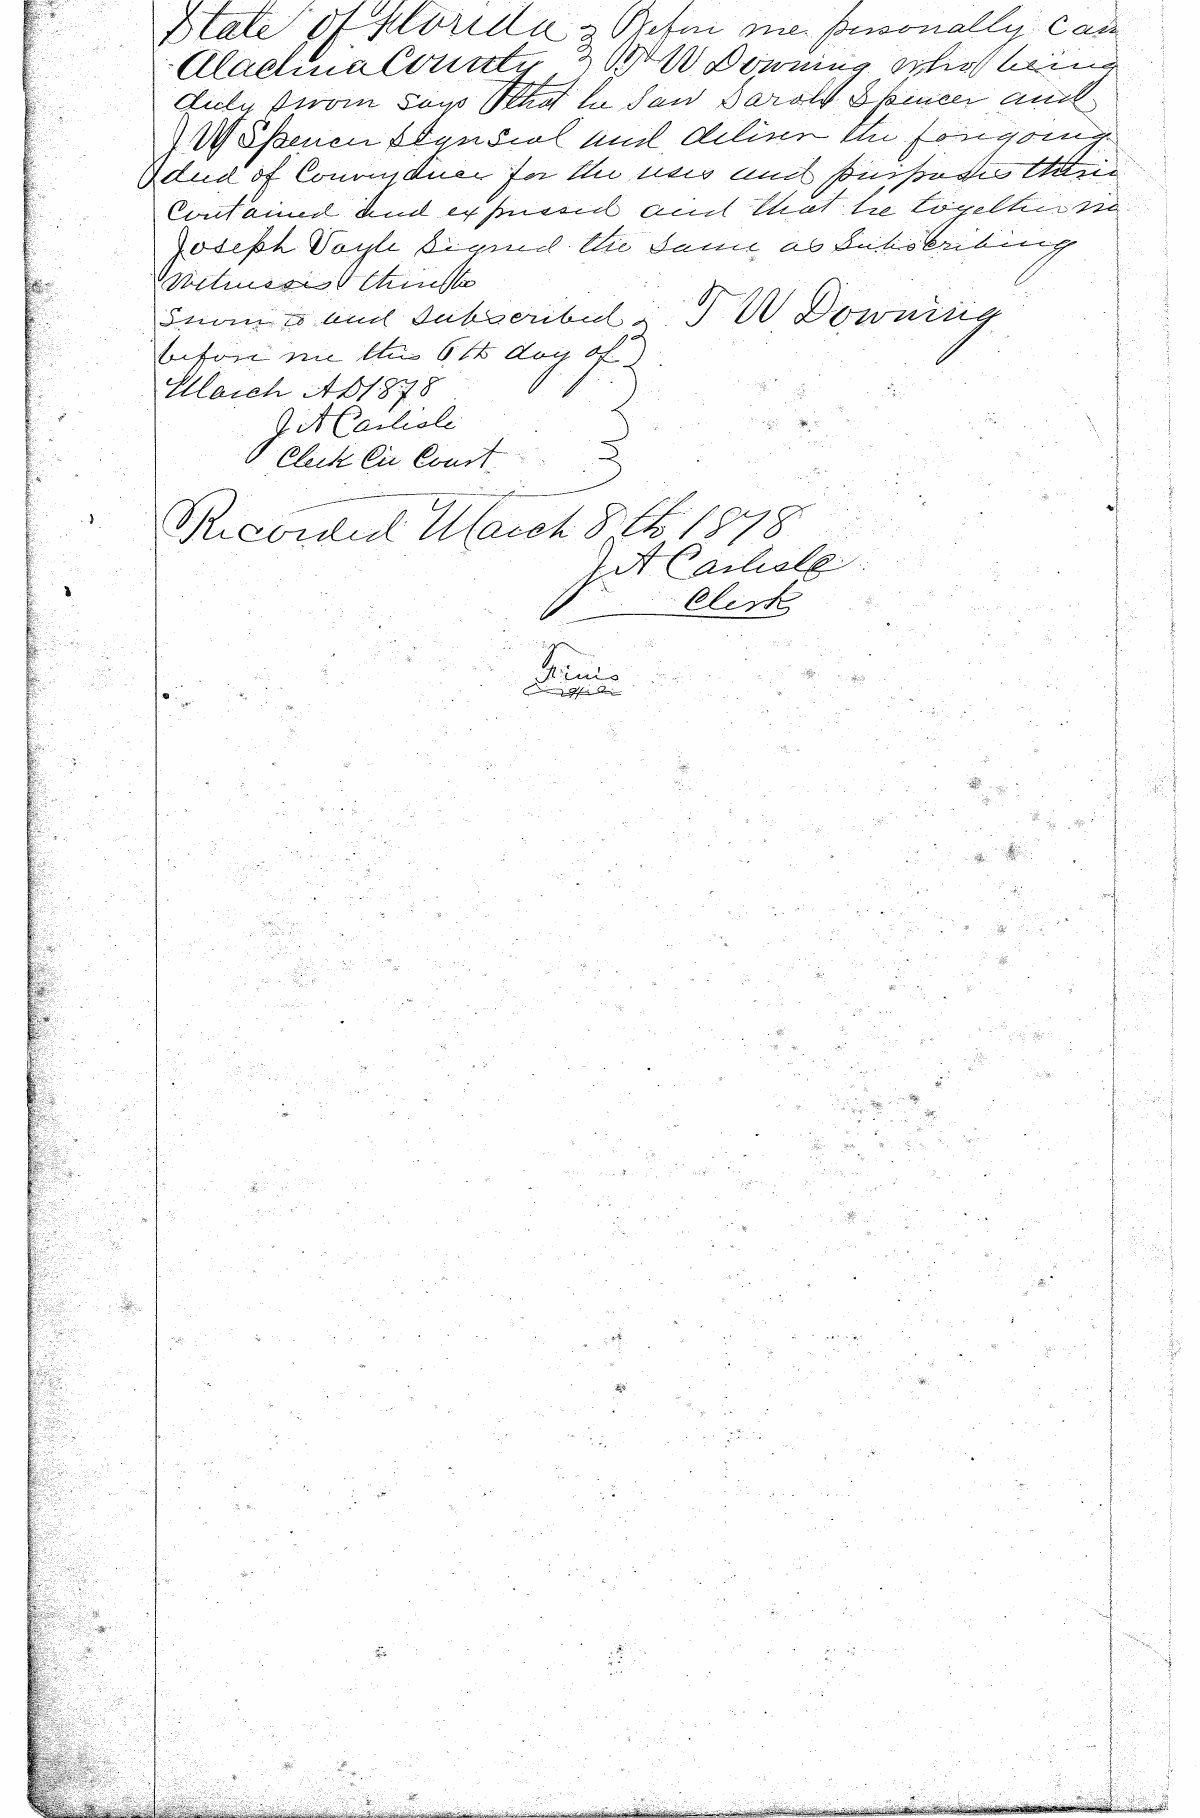 State of Florida } Before me personally cam
Alachua County } T W Downing who being
duly sworn says that he saw Sarah Spencer and
J W Spencer sign seal and deliver the foregoing
deed of Conveyance for the uses and purposes therin
Contained and expressed and that he together
Joseph Voyle signed the same as Subscribing
Witnesses thereto
Sworn to and subscribed } T W Downing
before me this 6th day of }
March AD 1878
J A Carlisle
Clerk Cir Court
Recorded March 8th 1878
J A Carlisle
Clerk
Finis